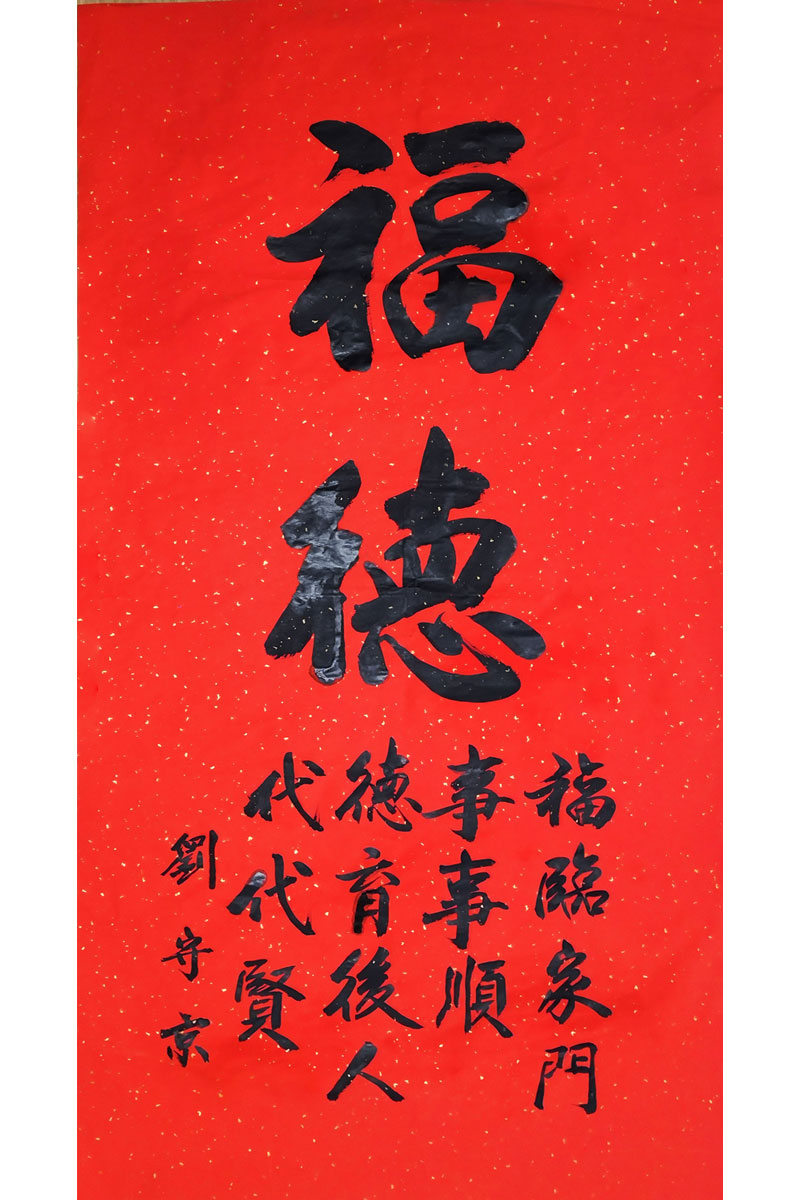 福德
福臨家門
事事順
德育後人
代代賢
劉守京